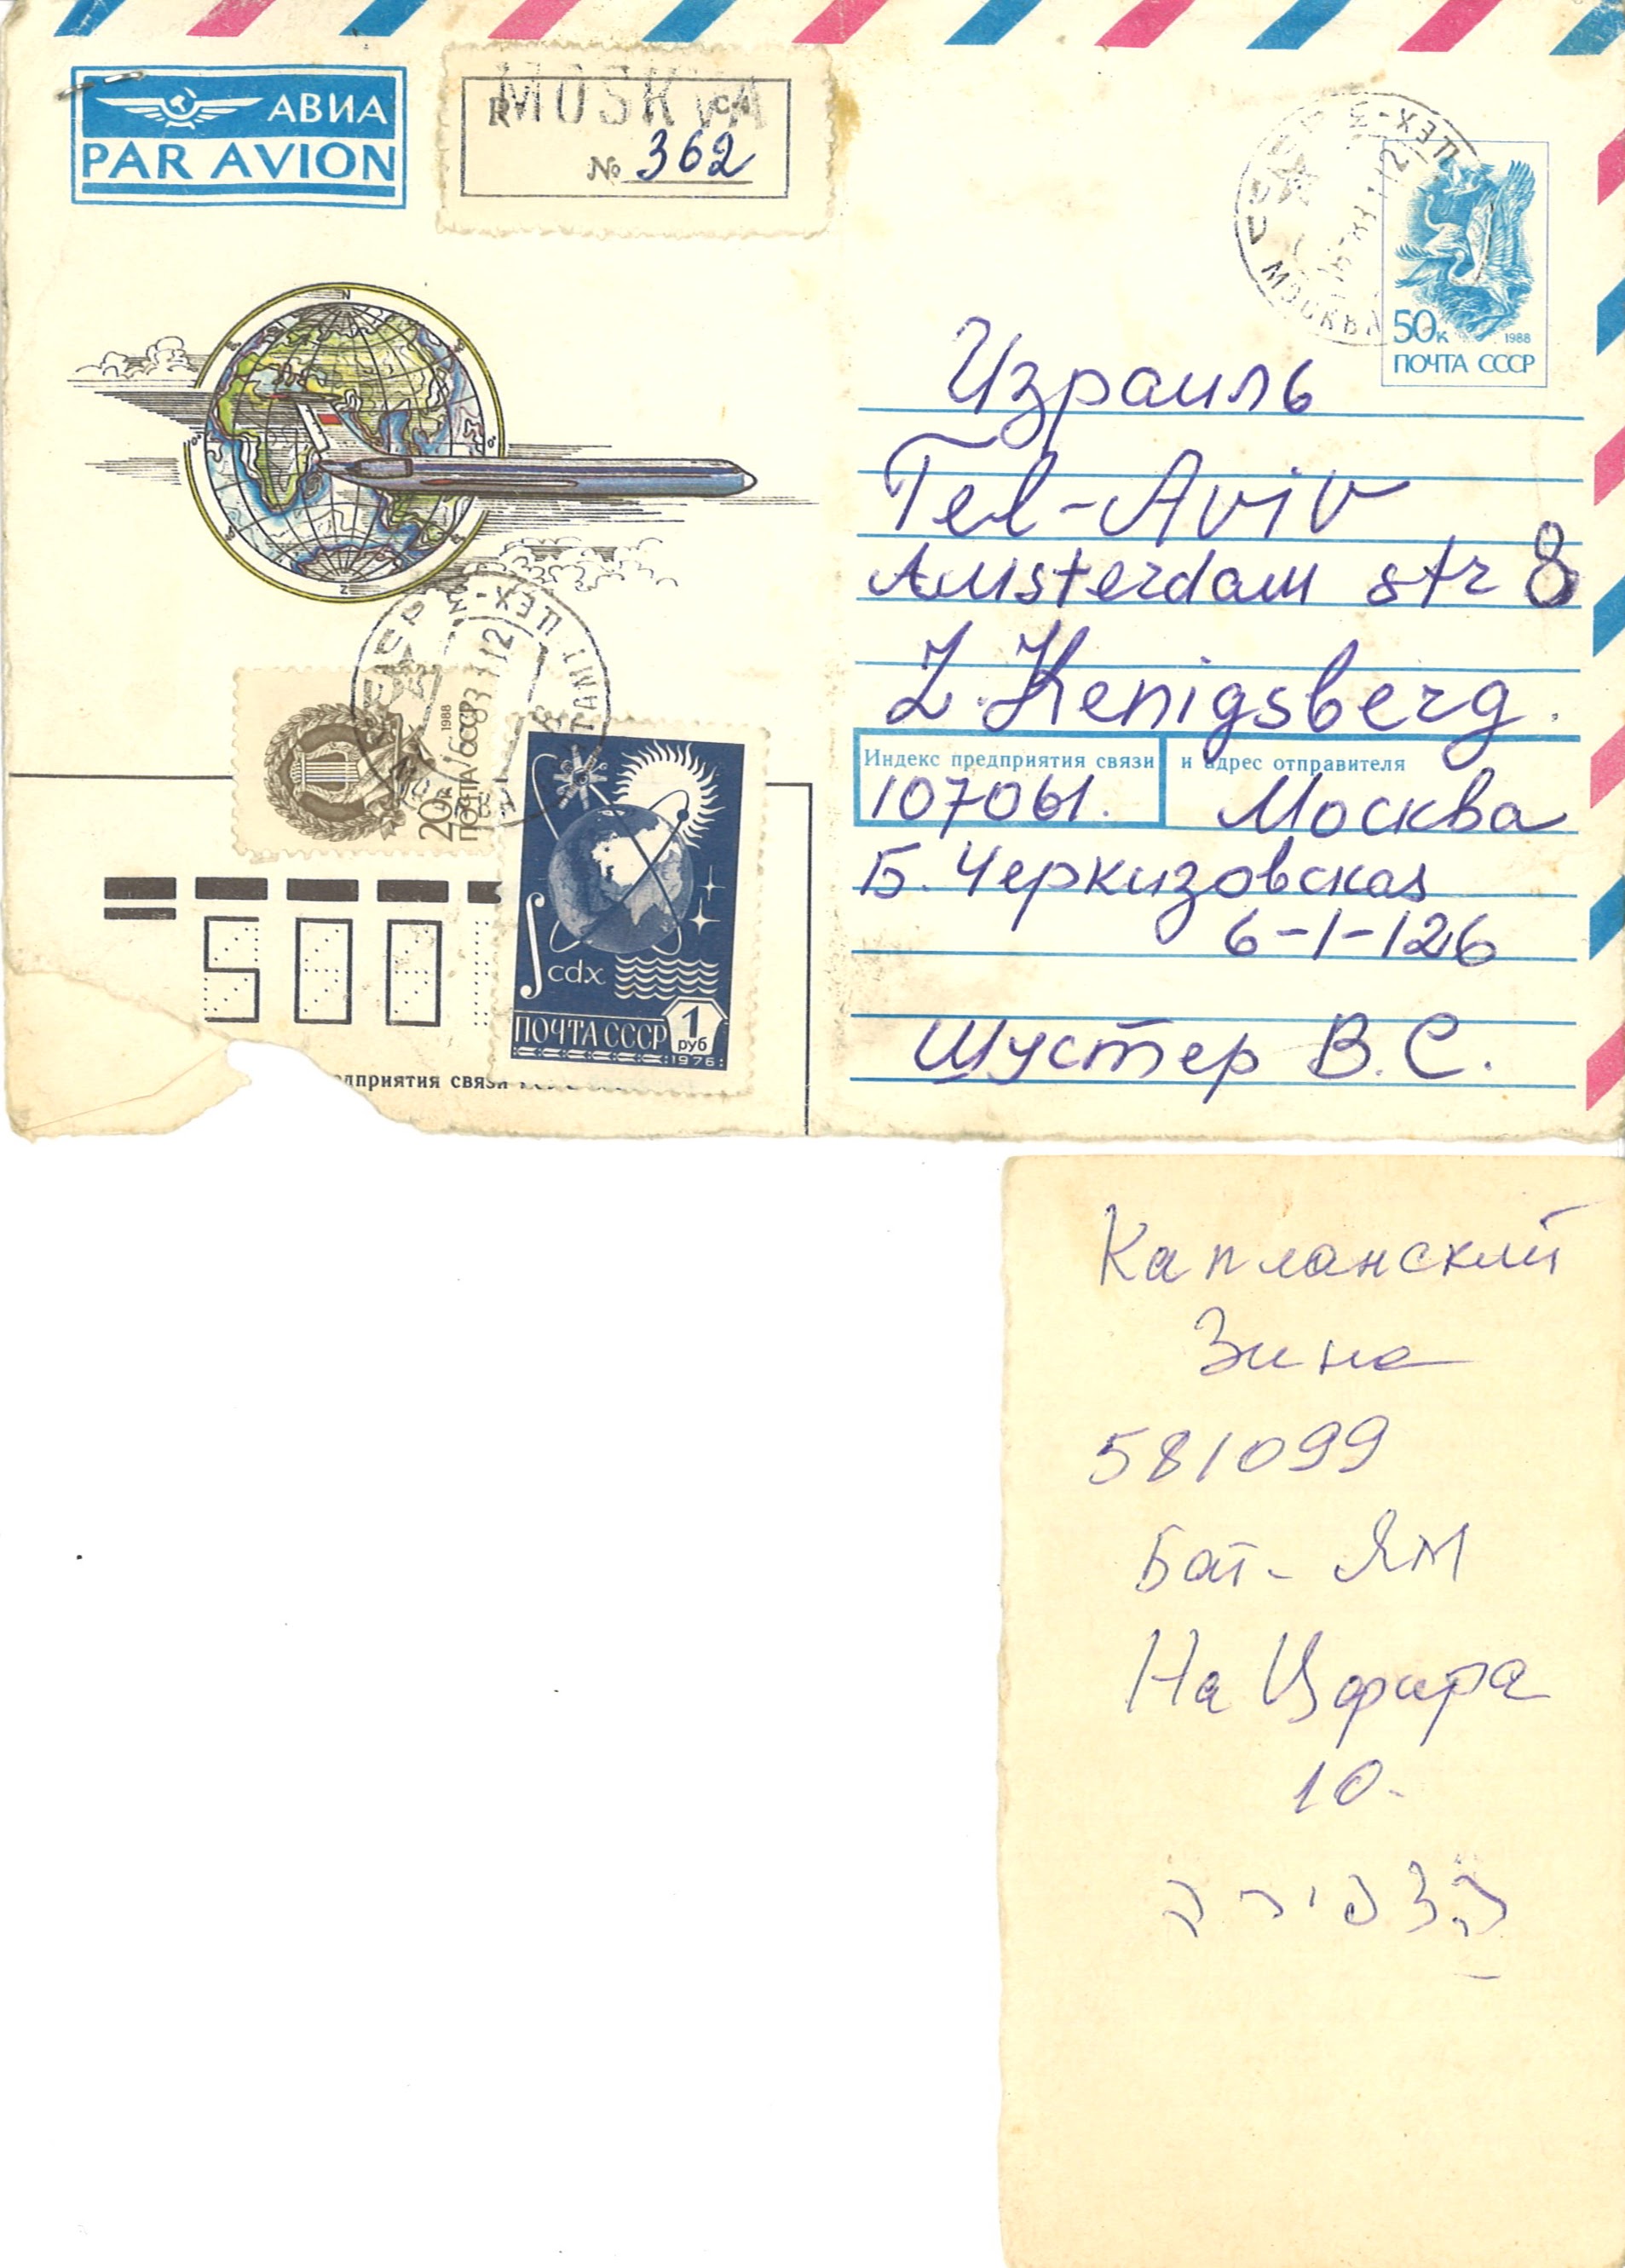 АВИА
PAR AVION
MOSKVA
R
№ 362
50к 1988
ПОЧТА СССР
Израиль
Tel-Aviv
Amsterdam str 8
Z. Kenigsberg.
Индекс предприятия связи и адрес отправителя
107061. Москва
Б. Черкизовская
6-1-126
Шустер В. С.
СССР МОСКВА
ЦЕХ-3
20к ПОЧТА СССР 1988
∫ cdx
ПОЧТА СССР 1 руб
1976
едприятия связи
Капланский
Зина
581099
Бат-Ям
На Цфира
10.
הצפירה